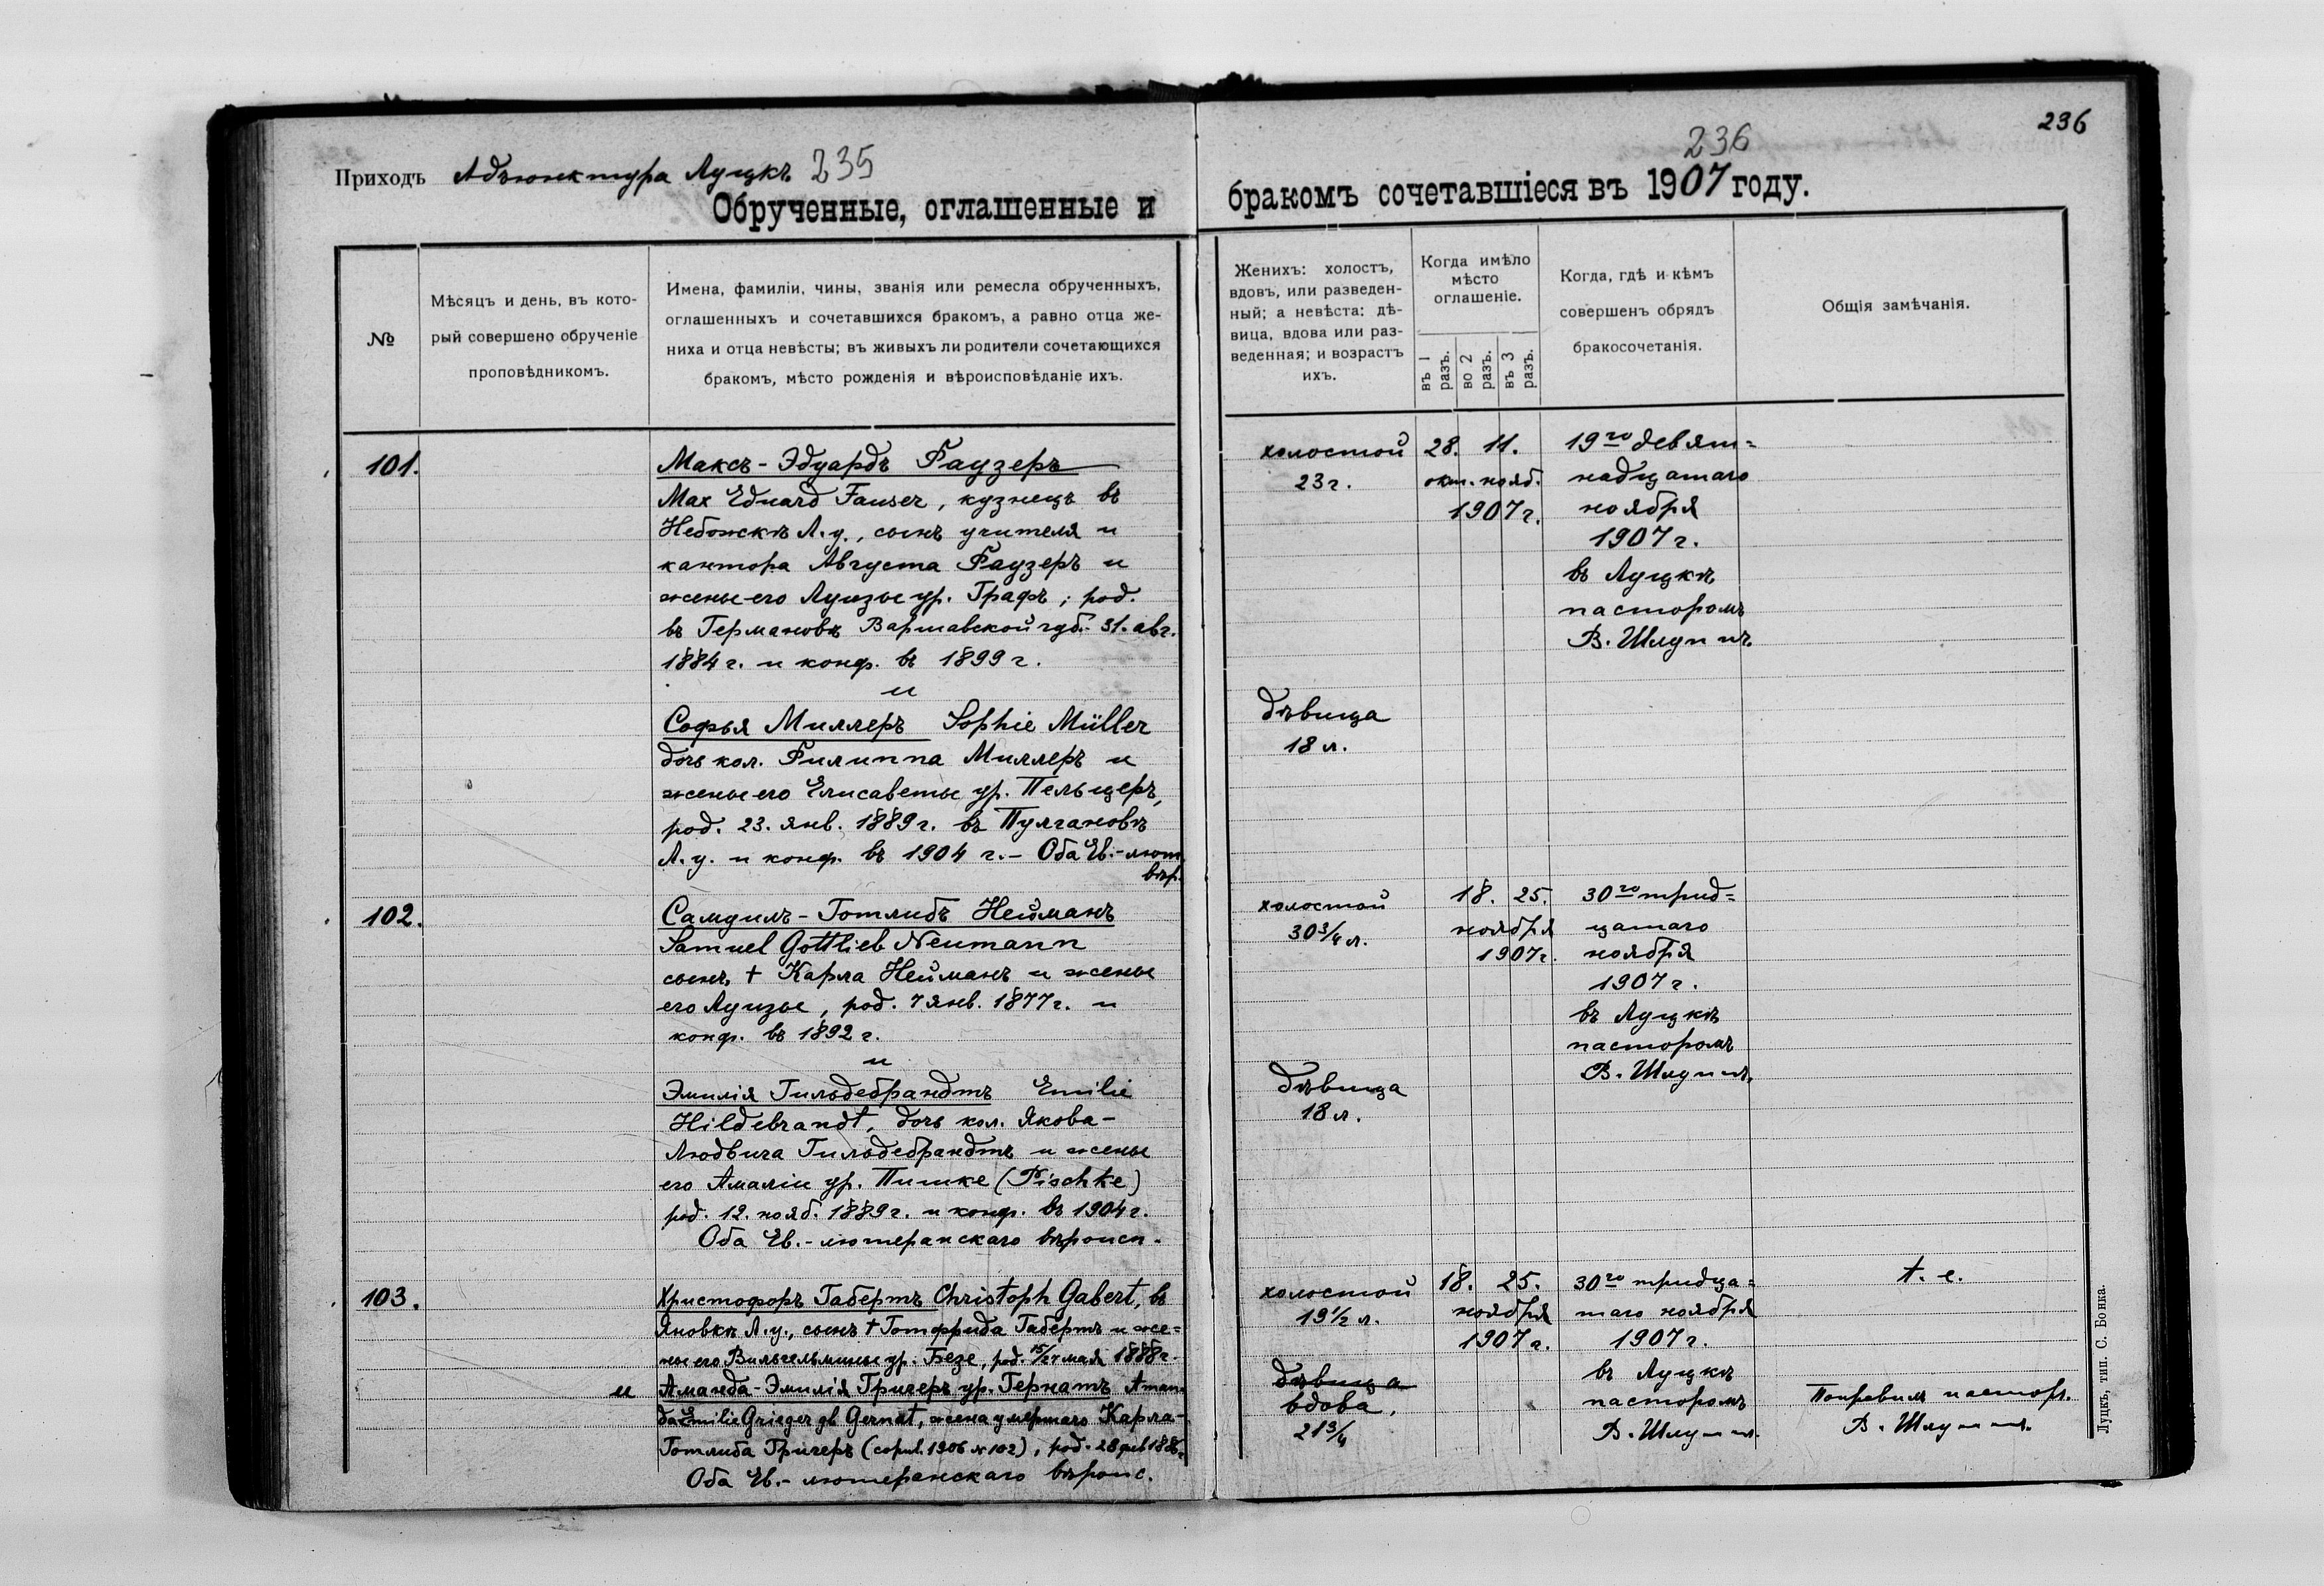 236
236
Приходъ Адъюнктура Луцкъ 235
Обрученные, оглашенные и бракомъ сочетавшіеся въ 1907 году.
№
Мѣсяцъ и день, въ кото-
рый совершено обрученіе
проповѣдникомъ.
Имена, фамиліи, чины, званія или ремесла обрученныхъ,
оглашенныхъ и сочетавшихся бракомъ, а равно отца же-
ниха и отца невѣсты; въ живыхъ ли родители сочетающихся
бракомъ, мѣсто рожденія и вѣроисповѣданіе ихъ.
Женихъ: холостъ,
вдовъ, или разведен-
ный; а невѣста: дѣ-
вица, вдова или раз-
веденная; и возрастъ
ихъ.
Когда имѣло
мѣсто
оглашеніе.
въ 1
разъ.
во 2
разъ.
въ 3
разъ.
Когда, гдѣ и кѣмъ
совершенъ обрядъ
бракосочетанія.
Общія замѣчанія.
101.
Максъ-Эдуардъ Фаузеръ
Max Eduard Fauser, кузнецъ въ
Небожкѣ Л.у., сынъ учителя и
кантора Августа Фаузеръ и
жены его Луизы ур. Графъ; род.
въ Германовѣ Варшавской губ. 31. авг.
1884 г. и конф. въ 1899 г.
и
Софья Миллеръ Sophie Müller
дочь кол. Филиппа Миллеръ и
жены его Елисаветы ур. Пельцеръ,
род. 23. янв. 1889 г. въ Пулгановѣ
Л.у. и конф. въ 1904 г. – Оба Ев.-лют.
вѣр.
холостой
23 г.
дѣвица
18 л.
28. 11.
окт. нояб.
1907 г.
19го девят=
надцатаго
ноября
1907 г.
въ Луцкѣ
пасторомъ
В. Шлуппъ
102.
Самуилъ-Готлибъ Нейманъ
Samuel Gottlieb Neumann
сынъ † Карла Нейманъ и жены
его Луизы, род. 7 янв. 1877 г. и
конф. въ 1892 г.
и
Эмилія Гильдебрандтъ Emilie
Hildebrandt, дочь кол. Якова-
Людвига Гильдебрандтъ и жены
его Амаліи ур. Пишке (Pischke)
род. 12. нояб. 1889 г. и конф. въ 1904 г.
Оба Ев.-лютеранскаго вѣроисп.
холостой
30 3/4 л.
дѣвица
18 л.
18. 25.
ноября
1907 г.
30го трид=
цатаго
ноября
1907 г.
въ Луцкѣ
пасторомъ
В. Шлуппъ.
103.
Христофоръ Габертъ Christoph Gabert, въ
Яновкѣ Л.у., сынъ † Готфрида Габертъ и же=
ны его Вильгельмины ур. Безе, род. 15/27 мая 1888 г.
и Аманда-Эмилія Григеръ ур. Гернатъ Aman-
da Emilie Grieger gb Gernat, жена умершаго Карла-
Готлиба Григеръ (1906 № 102), род. 28 фев 1886 г.
Оба Ев.-лютеранскаго вѣроис.
холостой
19 1/2 л.
дѣвица
вдова.
21 3/4
18. 25.
ноября
1907 г.
30го тридца=
таго ноября
1907 г.
въ Луцкѣ
пасторомъ
В. Шлуппъ.
t. e.
Поправилъ пасторъ.
В. Шлуппъ.
Луцкъ, тип. С. Бонка.